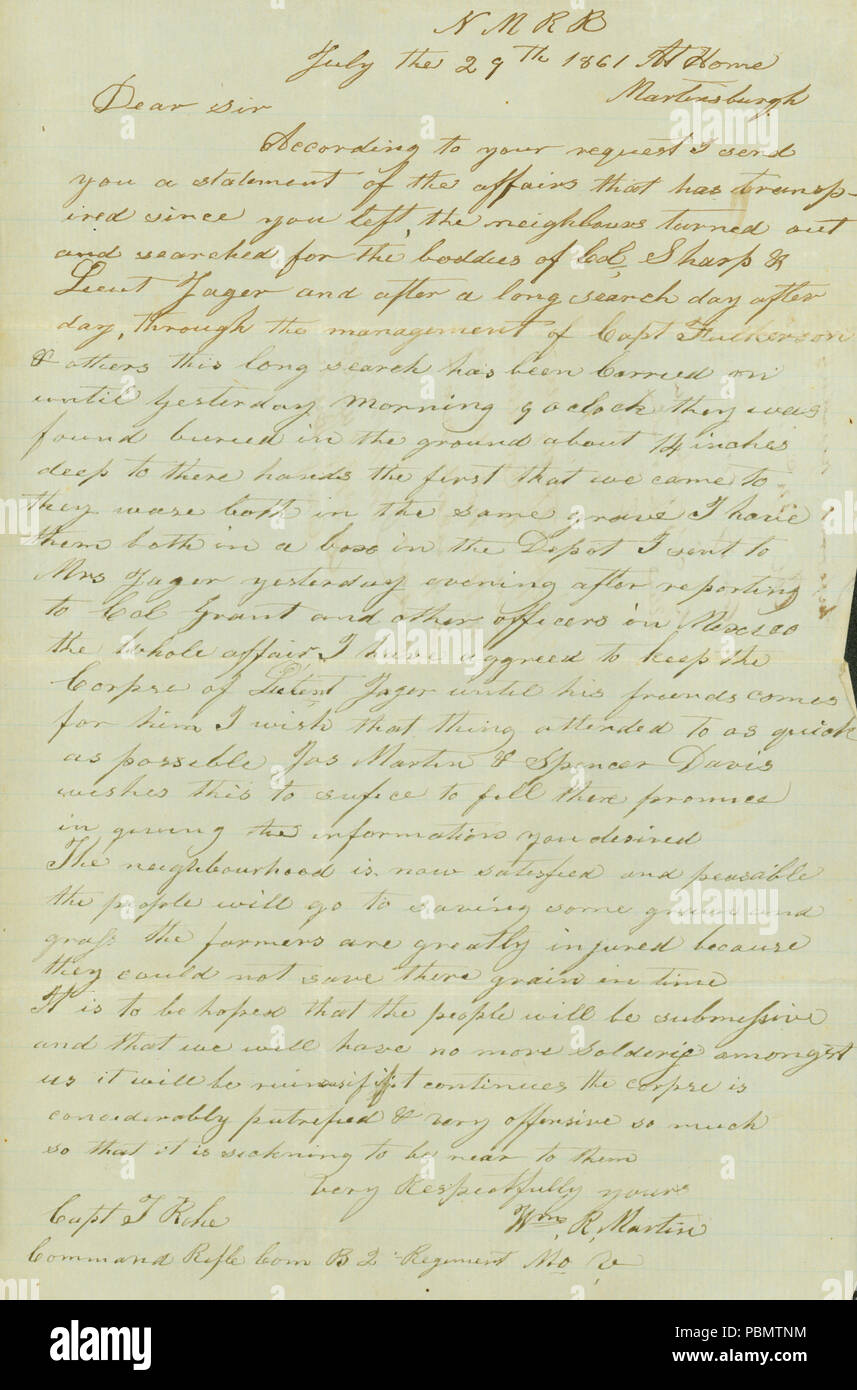 N M R R
July the 29th 1861 At Home
Martinsburgh
Dear Sir
According to your request I send
you a statement of the affairs that has transp-
ired since you left, the neighbours turned out
and searched for the boddies of Col, Sharp &
Lieut Jager and after a long search day after
day, through the management of Capt Fulkerson
& others this long search has been Carried on
until yesterday morning 9 oclock they was
found buried in the ground about 14 inches
deep to there hands the first that we came to
they ware both in the same grave I have
them both in a box in the Depot I sent to
Mrs Jager yesterday evening after reporting
to Col Grant and other officers in Mexico
the whole affair, I have aggreed to keep the
Corpse of Jager until his friends comes
for him I wish that thing attended to as quick
as possible Jas Martin & Spencer Davis
wishes this to sufice to fill there promice
in giving the information you desired
The neighbourhood is now satisfied and peasible
the people will go to saving some grain and
grass the farmers are greatly injured because
they could not save there grain in time
It is to be hoped that the people will be submissive
and that we will have no more amongst
us it will be if it continues the corpse is
conciderably putrefied & very offensive so much
so that it is sickning to be near to them
Very Respectfully yours
Wm, R, Martin
Capt T Rohe
Command Rifle Com B 2 Regiment Mo V
alamy
Image ID: PBMTNM
www.alamy.com